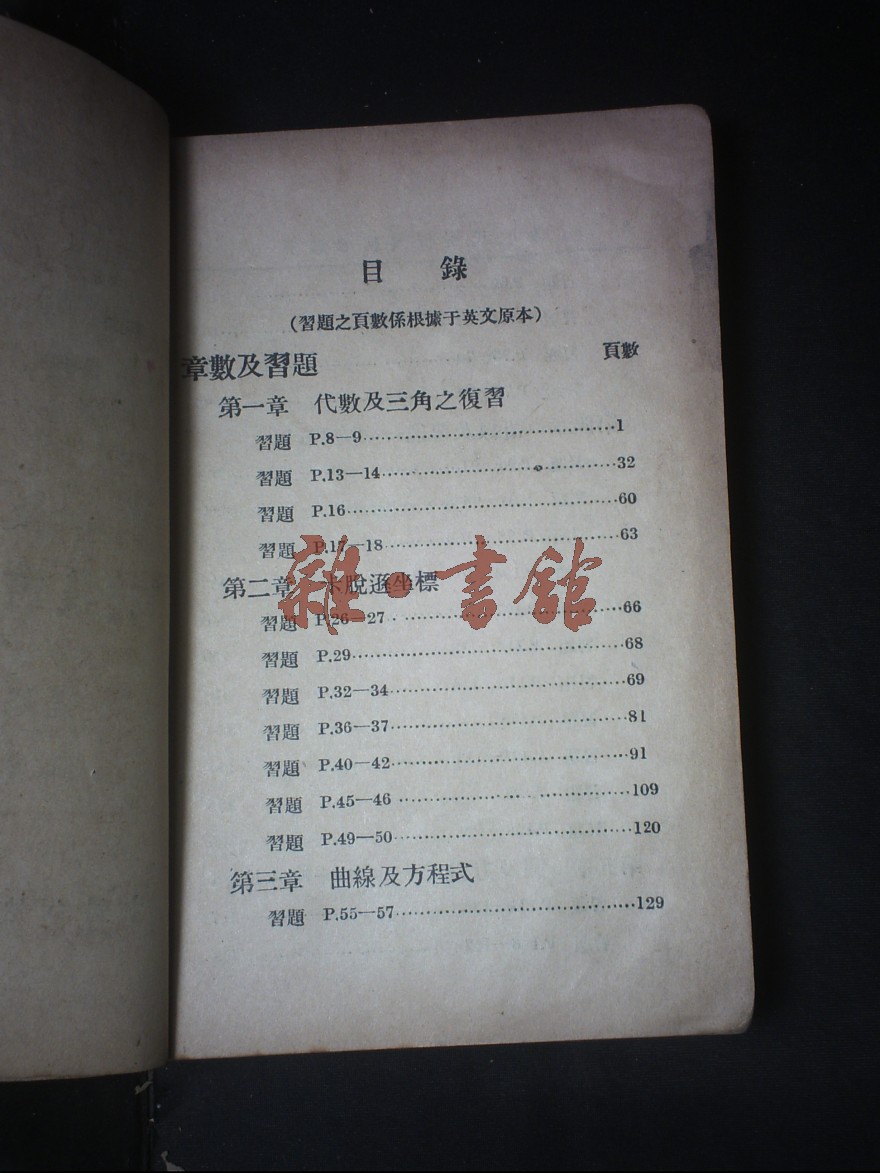 目 錄
(習題之頁數係根據于英文原本)
章數及習題 頁數
第一章 代數及三角之復習
習題 P.8—9 1
習題 P.13—14 32
習題 P.16 60
習題 P.17—18 63
第二章 卡脫遜坐標
習題 P.26—27 66
習題 P.29 68
習題 P.32—34 69
習題 P.36—37 81
習題 P.40—42 91
習題 P.45—46 109
習題 P.49—50 120
第三章 曲線及方程式
習題 P.55—57 129
雜·書館